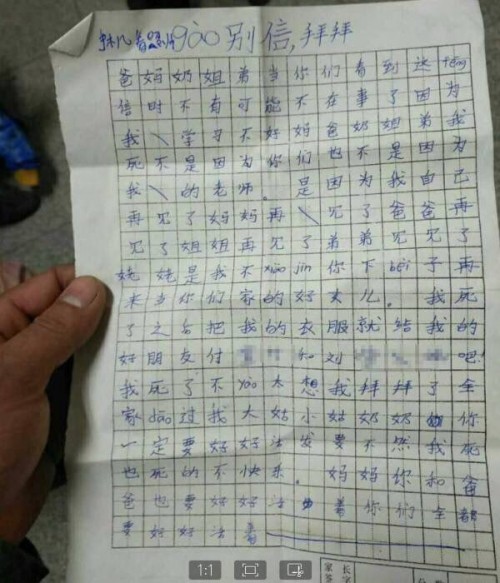 别信,拜拜
爸妈奶姐弟当你们看到这fēng
信时不有可能不在事了因为
我\学习不好妈爸奶姐弟我
死不是因为你们也不是因为
我\的老师。是因为我自己
再见了妈妈再\见了爸爸再
见了姐姐再见了弟弟见见了
姥姥是我不xiào jìn你下bèi子再
来当你们家的好女儿。我死
了之后把我的衣服就给我的
好朋友付 和刘 吧!
我死了不yào太想我拜拜了全
家dào过我大姑小姑奶奶你
一定要好好活发要不然我死
也死的不快乐。妈妈你和爸
爸也要好好活着你们全都
要好好活着
家长
签字
1:1